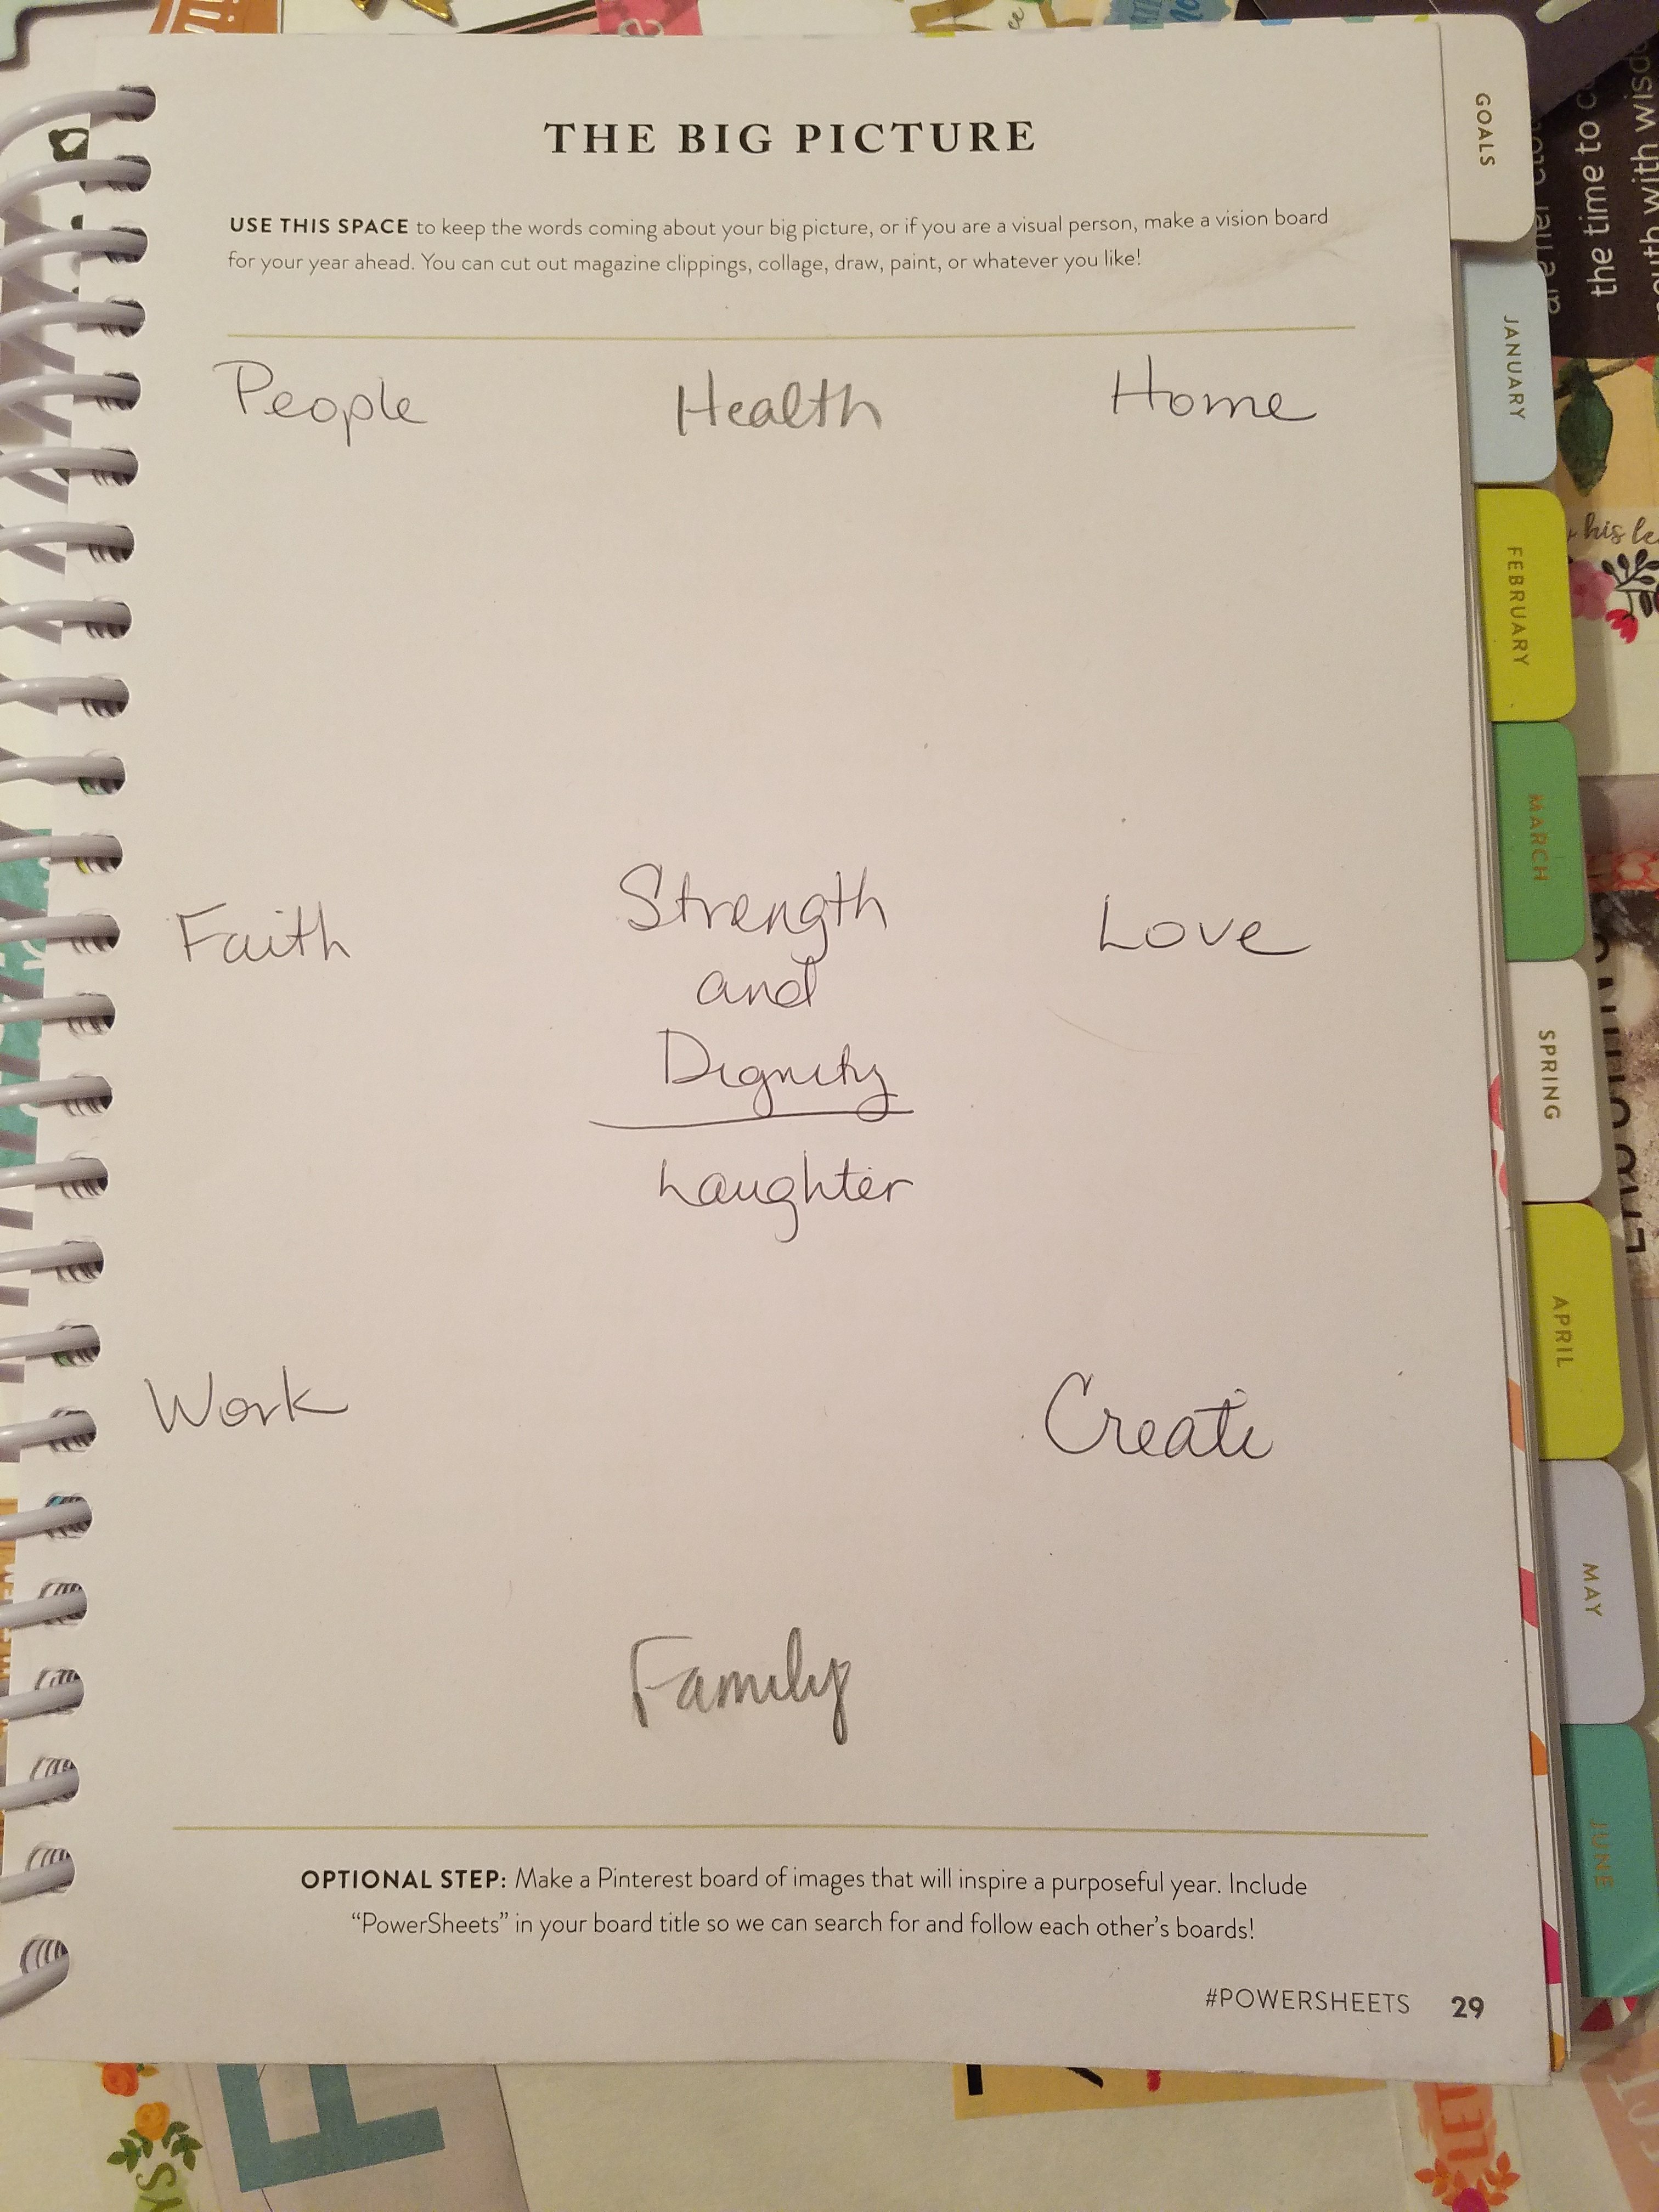 THE BIG PICTURE
USE THIS SPACE to keep the words coming about your big picture, or if you are a visual person, make a vision board
for your year ahead. You can cut out magazine clippings, collage, draw, paint, or whatever you like!
People Health Home
Faith Strength Love
and
Dignity
Laughter
Work Create
Family
OPTIONAL STEP: Make a Pinterest board of images that will inspire a purposeful year. Include
“PowerSheets” in your board title so we can search for and follow each other’s boards!
#POWERSHEETS 29
GOALS
JANUARY
FEBRUARY
MARCH
SPRING
APRIL
MAY
JUNE
the time to
with
his